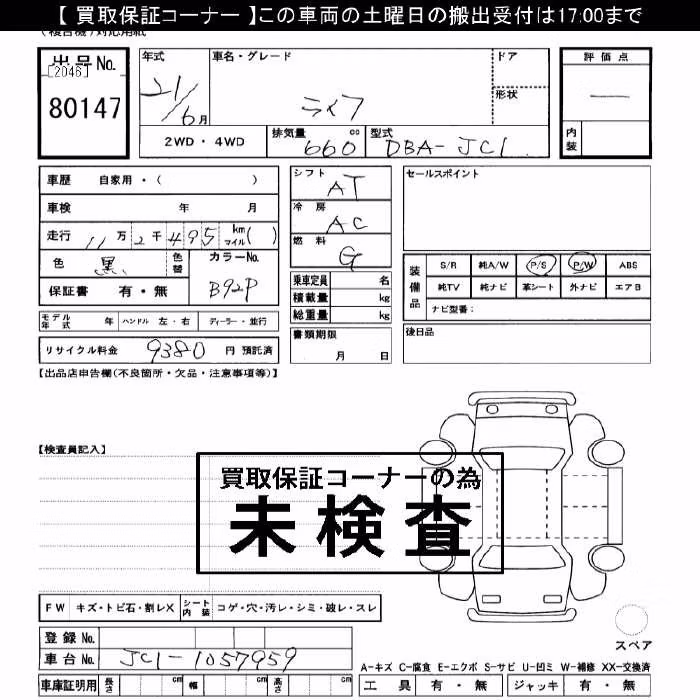 【 買取保証コーナー 】この車両の土曜日の搬出受付は17:00まで
(複合機)対応用紙
出品No.
[2046]
80147
年式
21/6月
車名・グレード
ライフ
ドア
形状
評価点
—
内装
2WD・4WD
排気量 cc
660
型式
DBA-JC1
車歴 自家用・( )
車検 年 月
走行 11万2千495 km マイル( )
色 黒 色替
カラーNo.
B92P
保証書 有・無
シフト
AT
冷房
AC
燃料
G
セールスポイント
乗車定員 名
積載量 kg
総重量 kg
装備品
S/R 純A/W P/S P/W ABS
純TV 純ナビ 革シート 外ナビ エアB
ナビ型番:
モデル年式 年 ハンドル 左・右 ディーラー・並行
書類期限
月 日
後日品
リサイクル料金 9380 円 預託済
【出品店申告欄(不良箇所・欠品・注意事項等)】
【検査員記入】
買取保証コーナーの為
未検査
FW キズ・トビ石・割レX シート内装 コゲ・穴・汚レ・シミ・破レ・スレ
スペア
登録No.
車台No. JC1-1057959
A-キズ C-腐食 E-エクボ S-サビ U-凹ミ W-補修 XX-交換済
車庫証明用 長さ cm 幅 cm 高さ cm
工具 有・無 ジャッキ 有・無